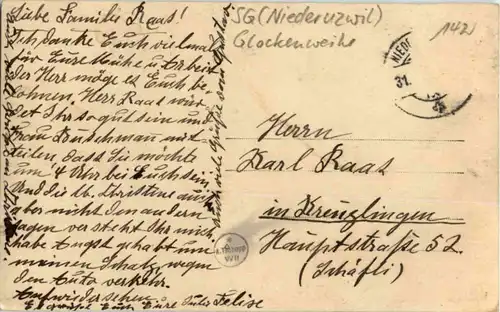 Liebe Familie Raas!
Ich danke Euch vielmal
für Eure Mühe und Arbeit
der Herr möge es Euch be-
lohnen. Herr Raas würdet
Ihr so gut sein und
Frau Buschman mit-
teilen, dass Sie möchte
um 4 Uhr bei Euch sein
Und die lb. Christine auch
aber nicht den andern
sagen versteht Ihr mich
habe Angst gehabt um
meinen Schatz, wegen
den Auto verkehr.
Aufwiedersehen
Es grüsst Euch Eure Felise
SG (Niederuzwil)
Glockenweihe
142)
NIED
31.
Herrn
Karl Raas
in Kreuzlingen
Hauptstrasse 52
(Schäfli)